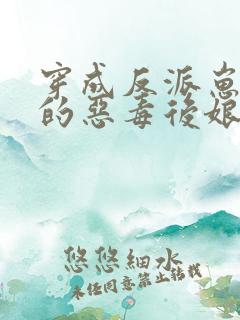 穿成反派崽
的惡毒後娘
悠悠細水
未經同意禁止轉載